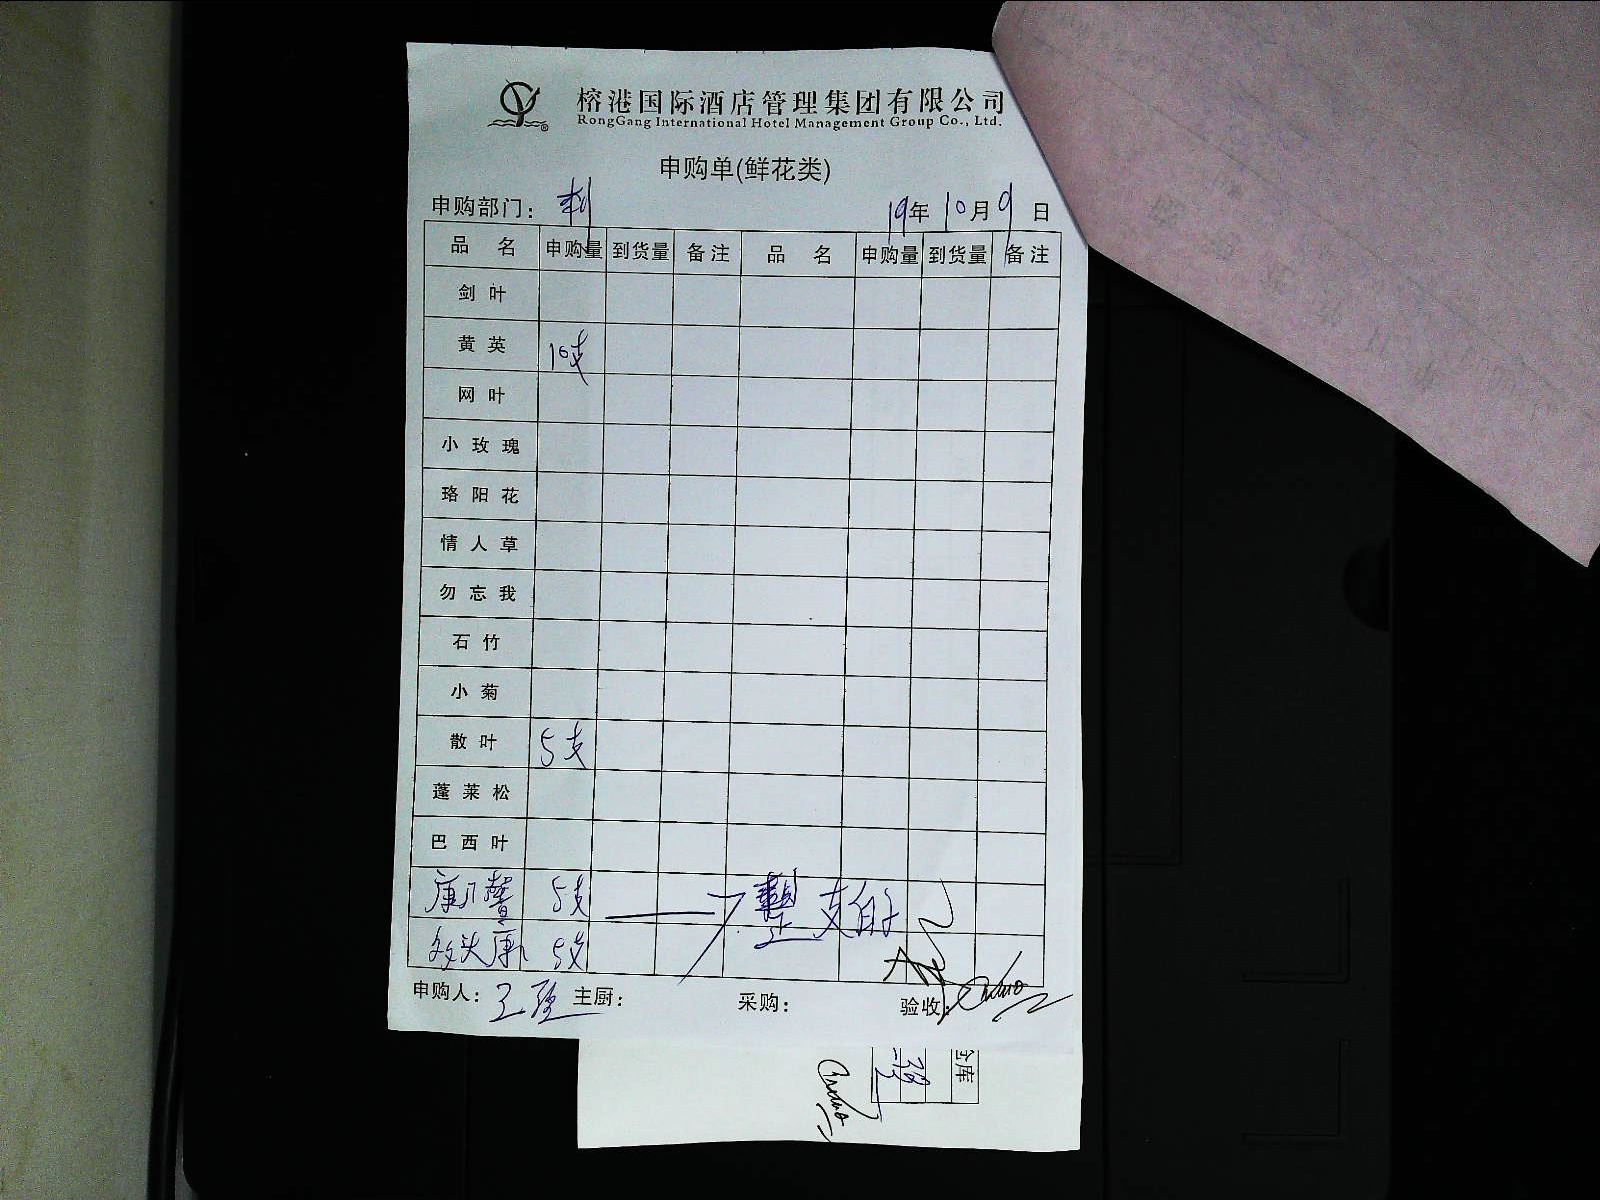 榕港国际酒店管理集团有限公司
RongGang International Hotel Management Group Co., Ltd.
申购单(鲜花类)
申购部门: 19年 10月 9日
品名 申购量 到货量 备注 品名 申购量 到货量 备注
剑叶
黄英 10支
网叶
小玫瑰
珞阳花
情人草
勿忘我
石竹
小菊
散叶 5支
蓬莱松
巴西叶
康乃馨 5支 整支的
多头康 5支
申购人: 主厨: 采购: 验收:
仓库